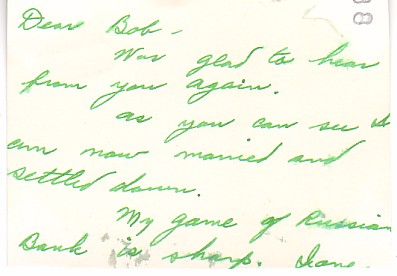 Dear Bob -
Was glad to hear
from you again.
As you can see I
am now married and
settled down.
My game of Russian
Bank is sharp.